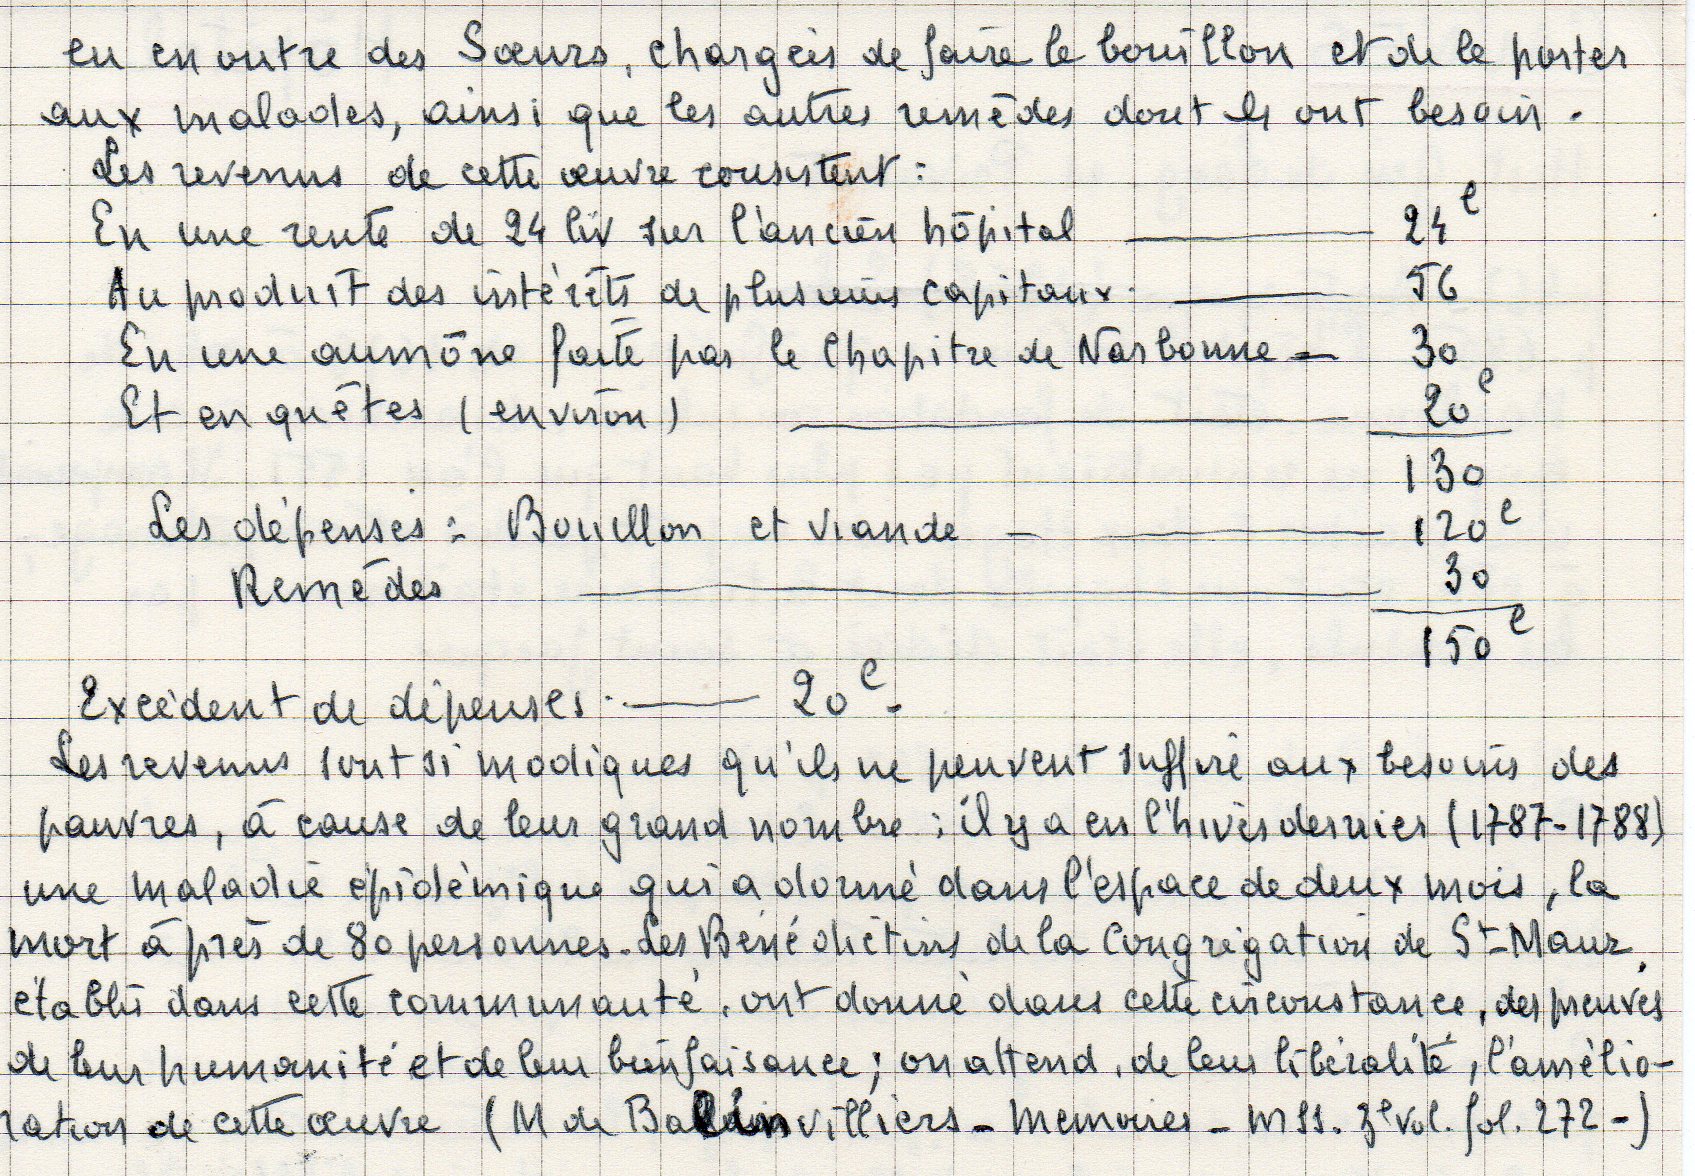 en en outre des Sœurs, chargées de faire le bouillon et de le porter
aux malades, ainsi que les autres remèdes dont ils ont besoin.
Les revenus de cette œuvre consistent :
En une rente de 24 liv sur l'ancien hôpital — 24 l
Au produit des intérêts de plusieurs capitaux. — 56
En une aumône faite par le Chapitre de Narbonne — 30
Et en quêtes (environ) — 20 l
130
Les dépenses : Bouillon et viande — 120 l
Remèdes — 30
150 l
Excédent de dépenses. — 20 l.
Les revenus sont si modiques qu'ils ne peuvent suffire aux besoins des
pauvres, à cause de leur grand nombre ; il y a en l'hiver dernier (1787-1788)
une maladie épidémique qui a donné dans l'espace de deux mois, la
mort à près de 80 personnes. Les Bénédictins de la Congrégation de St-Maur,
établis dans cette communauté, ont donné dans cette circonstance, des preuves
de leur humanité et de leur bienfaisance ; on attend, de leur libéralité, l'amélio-
ration de cette œuvre (M de Ballinvilliers - Memoires - mss. 3e vol. fol. 272 -)